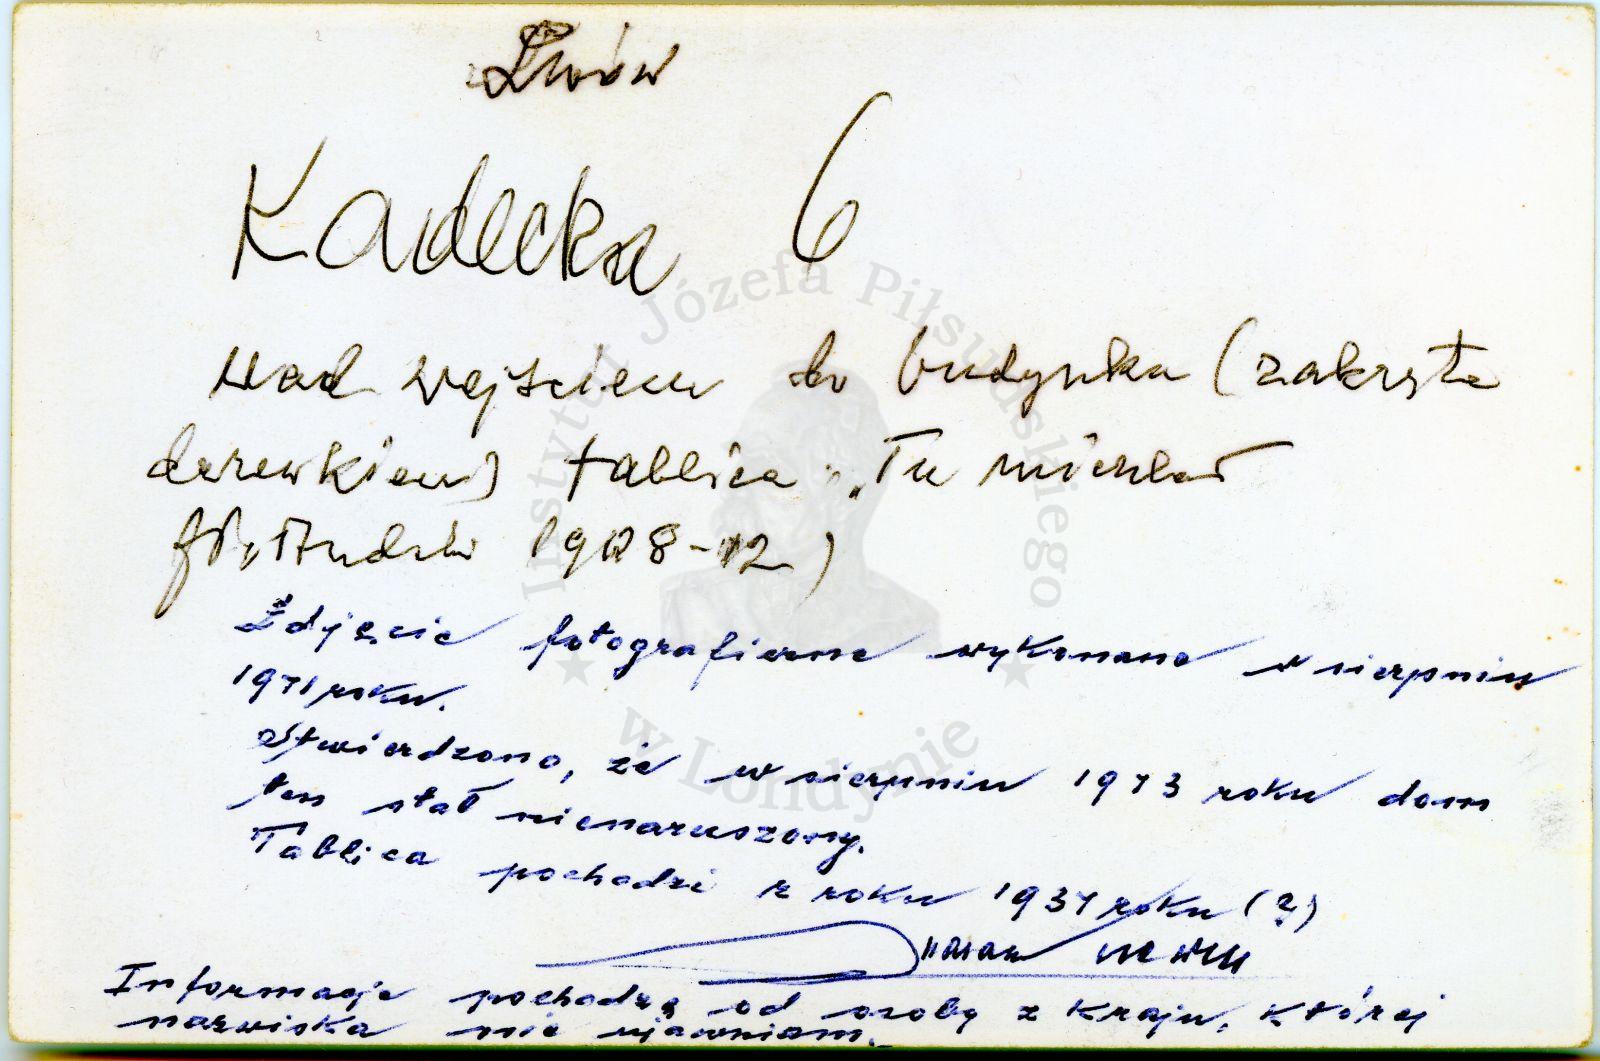 Lwów
Kadecka 6
Nad wejściem do budynku (zakryta
drzewkiem) tablica: „Tu mieszkał
Piłsudski 1908-12)
Zdjęcie fotograficzne wykonano w sierpniu
1971 roku.
Stwierdzono, że w sierpniu 1973 roku dom
ten stał nienaruszony.
Tablica pochodzi z roku 1937 roku (?)
Informacje pochodzą od osoby z Kraju, której
nazwiska nie ujawniam.
Instytut Józefa Piłsudskiego
w Londynie